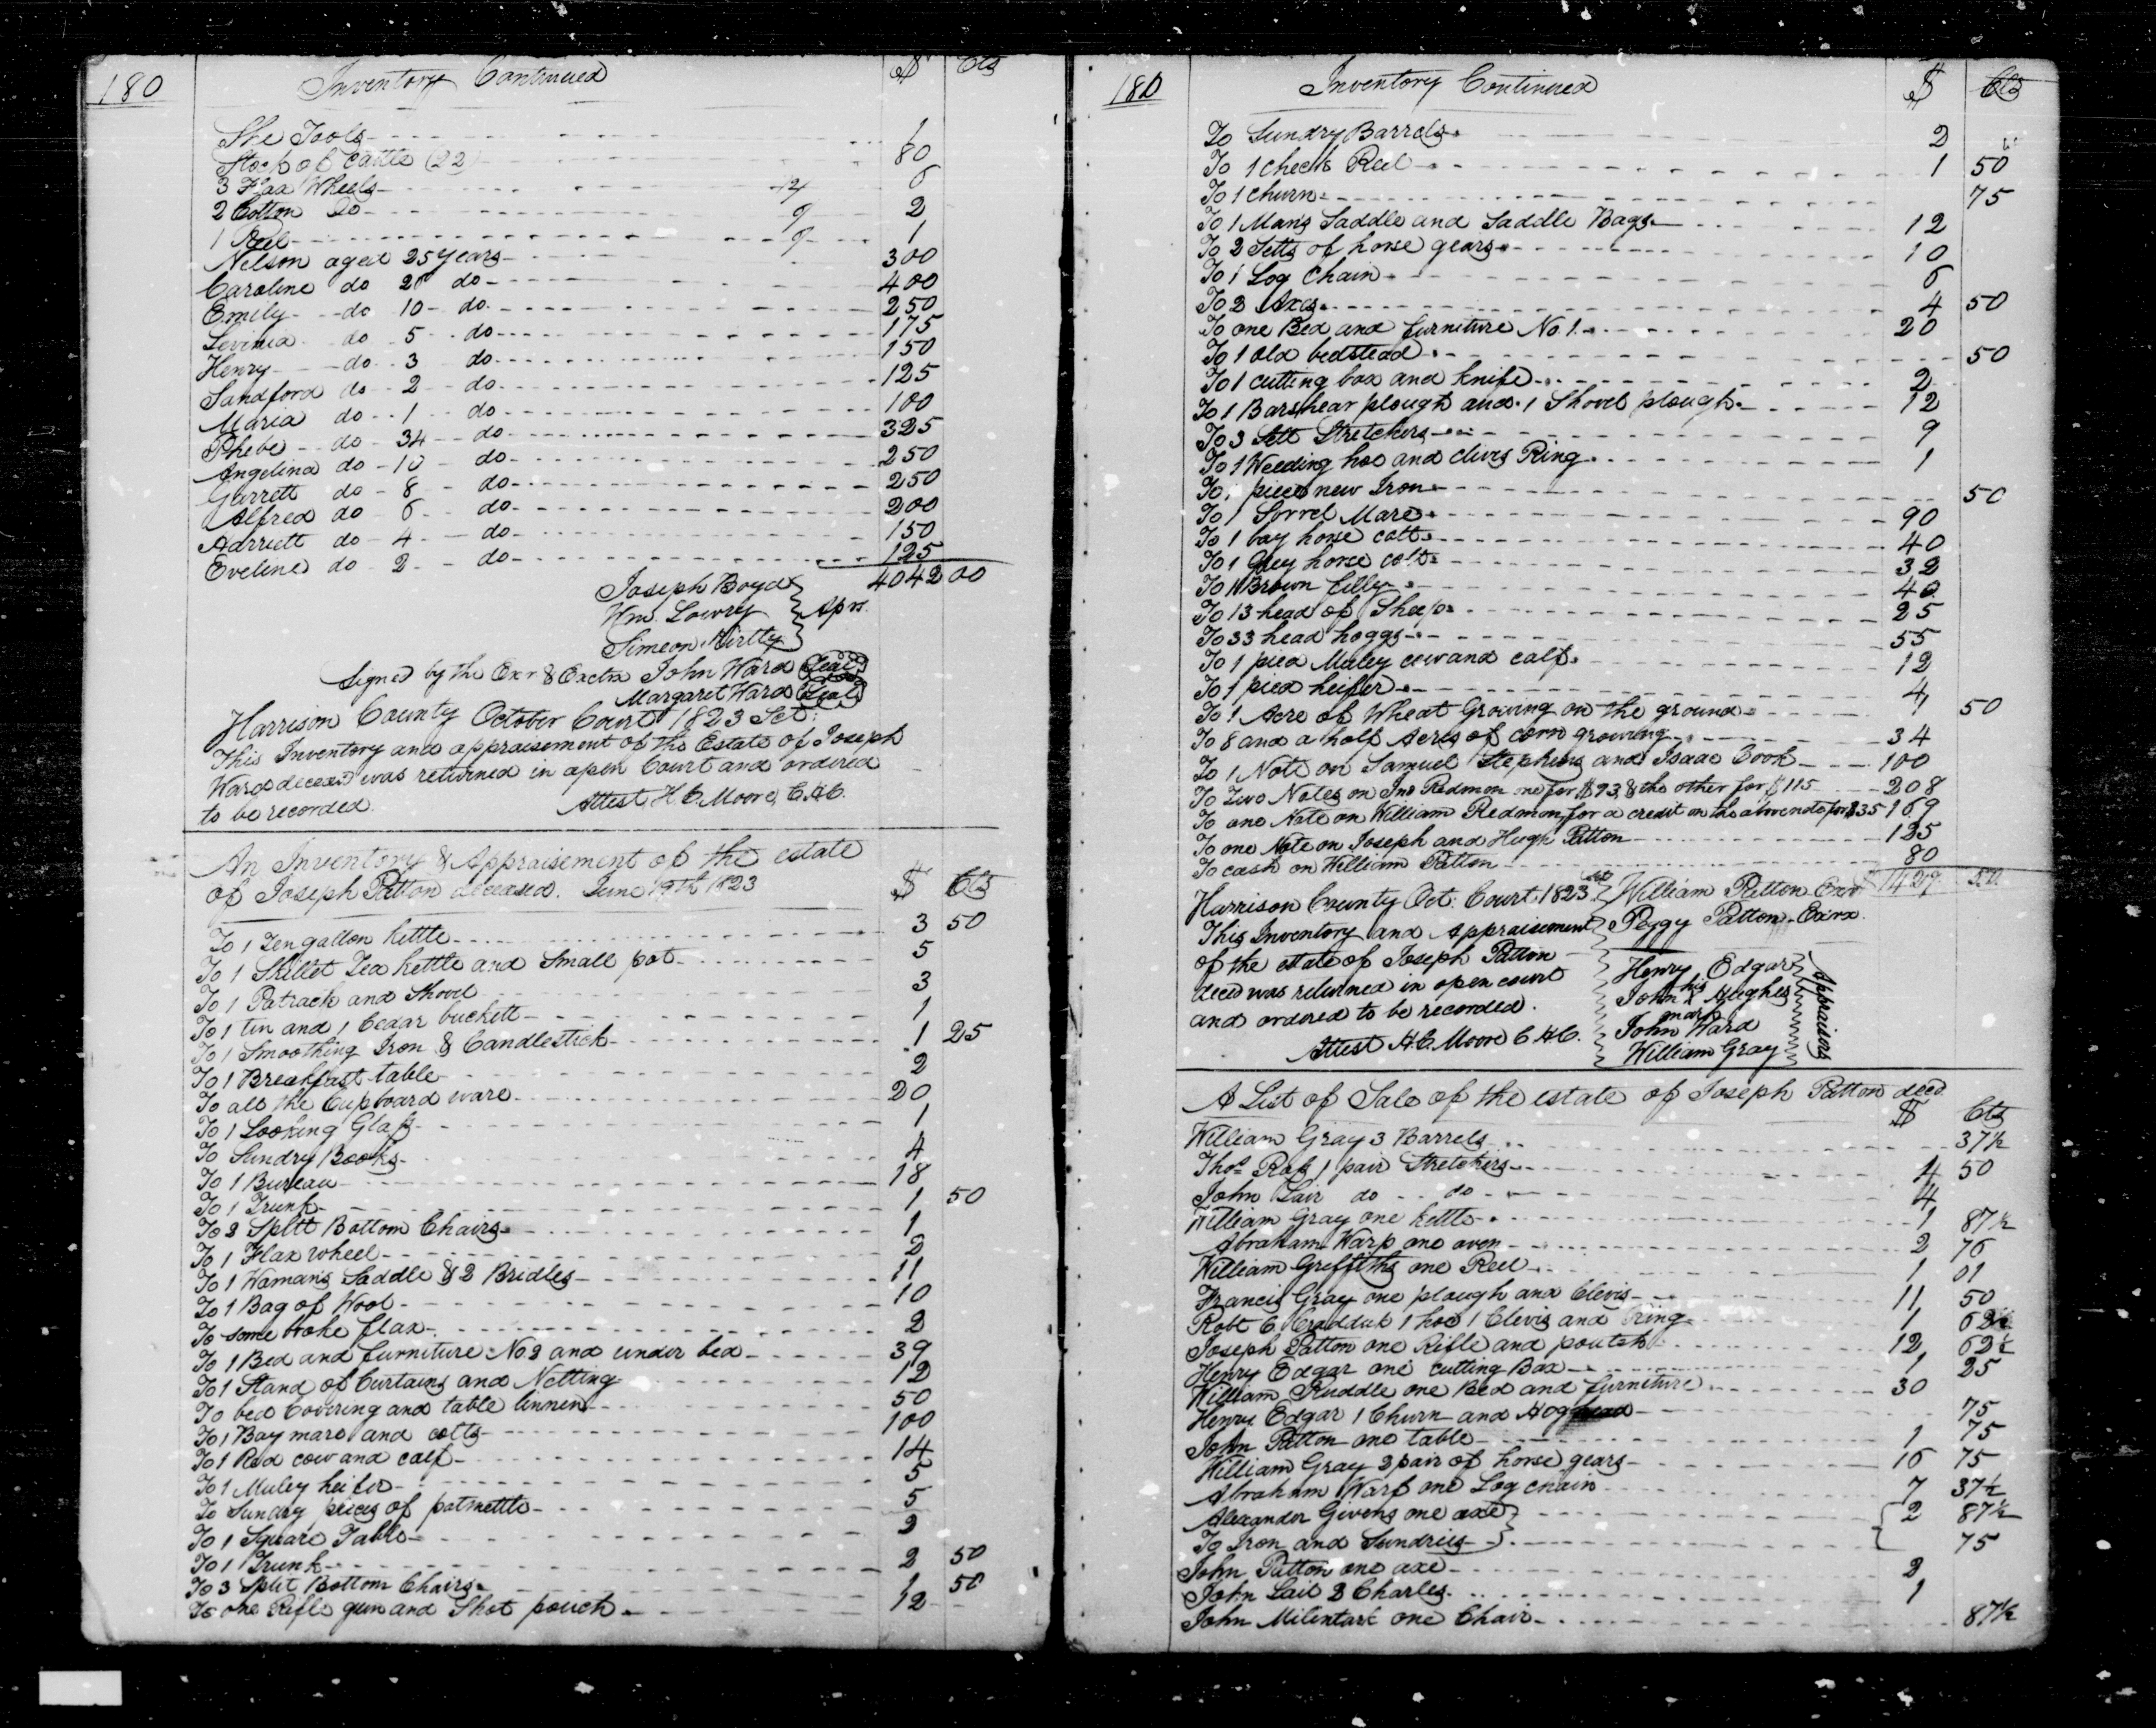 180 Inventory Continued $ Cts
Sho Tools 1
Stock of Cattle (22) 80
3 Flax Wheels 6
2 Cotton Do 2
1 Reel 1
Nelson aged 25 years 300
Caroline do 26 do 400
Emily do 10 do 250
Levinia do 5 do 175
Henry do 3 do 150
Sandford do 2 do 125
Maria do 1 do 100
Phebe do 34 do 325
Angelina do 10 do 250
Garrett do 8 do 250
Alfred do 6 do 200
Harriett do 4 do 150
Eveline do 2 do 125
4042 00
Joseph Boyd
Wm. Lowry } Aprs.
Simeon Kirtly
Signed by the Exr & Exctrx John Ward Seal
Margaret Ward Seal
Harrison County October Court 1823 Sct:
This Inventory and appraisement of the Estate of Joseph
Ward deceasd was returned in open Court and ordered
to be recorded. Attest H. C. Moore, C.H.C.
An Inventory & Appraisement of the estate
of Joseph Patton deceased. June 19th 1823 $ Cts
To 1 Ten gallon kettle 3 50
To 1 Skillet Tea kettle and Small pot 5
To 1 Potrack and Shovel 3
To 1 tin and 1 Cedar buckett 1
To 1 Smoothing Iron & Candlestick 1 25
To 1 Breakfast table 2
To all the Cupboard ware 20
To 1 Looking Glass 1
To Sundry Books 4
To 1 Bureau 18
To 1 Trunk 1 50
To 2 Splitt Bottom Chairs 1
To 1 Flax wheel 2
To 1 Womans Saddle & 2 Bridles 11
To 1 Bag of Wool 10
To some broke flax 2
To 1 Bed and furniture No 2 and under bed 39
To 1 Stand of Curtains and Netting 12
To bed Covering and table linnen 50
To 1 Bay mare and colts 100
To 1 Red cow and calf 14
To 1 Muley heifer 5
To Sundry pieces of potmettle 5
To 1 Square Table 2
To 1 Trunk 2 50
To 3 Split Bottom Chairs 1 50
To one Rifle gun and Shot pouch 12
180 Inventory Continued $ Cts
To Sundry Barrels 2
To 1 Check Reel 1 50
To 1 churn 75
To 1 Mans Saddle and Saddle Bags 12
To 2 Setts of horse gears 10
To 1 Log Chain 6
To 2 Axes 4 50
To one Bed and furniture No 1. 20
To 1 old bedstead 50
To 1 cutting box and knife 2
To 1 Barshear plough and 1 Shovel plough 12
To 3 Sett Stretchers 9
To 1 Weeding hoe and clivis Ring 1
To 1 piece new Iron 50
To 1 Sorrel Mare 90
To 1 bay horse colt 40
To 1 Grey horse colt 32
To 1 Brown filly 40
To 13 head of Sheep 25
To 33 head hoggs 55
To 1 pied Muley cow and calf 12
To 1 pied heifer 4
To 1 Acre of Wheat Growing on the ground 1 50
To 8 and a half Acres of corn growing 34
To 1 Note on Samuel Stephens and Isaac Cook 100
To Two Notes on Jno Redmon one for $93, & the other for $115 208
To one Note on William Redmon, for a credit on the above note for $35 169
To one Note on Joseph and Hugh Patton 125
To cash on William Patton 80
Harrison County Oct: Court 1823 Sct William Patton Exor 1427 50
This Inventory and Appraisement Peggy Patton Exr'x
of the estate of Joseph Patton Henry Edgar
decd was returned in open court John his x mark Hughes
and ordered to be recorded. John Ward
Attest H. C. Moore C H C. William Gray
Appraisers
A List of Sale of the estate of Joseph Patton decd.
$ Cts
William Gray 3 Barrels 37½
Thos Rass 1 pair Stretchers 4 50
John Lair do do 4
William Gray one kettle 1 87½
Abraham Warp one oven 2 76
William Griffiths one Reel 1 01
Francis Gray one plough and Clevis 11 50
Robt C. Craddick 1 hoe 1 Clevis and Ring 1 62½
Joseph Patton one Rifle and poutch 12 62½
Henry Edgar one cutting Box 1 25
William Ruddle one Bed and furniture 30
Henry Edgar 1 Churn and Hogshead 75
John Patton one table 1 75
William Gray 2 pair of horse gears 16 75
Abraham Warf one Log chain 7 37½
Alexander Givens one axe 2 87½
To Iron and Sundries 75
John Patton one axe 2
John Lail 2 Charles 1
John Milentark one Chair 87½